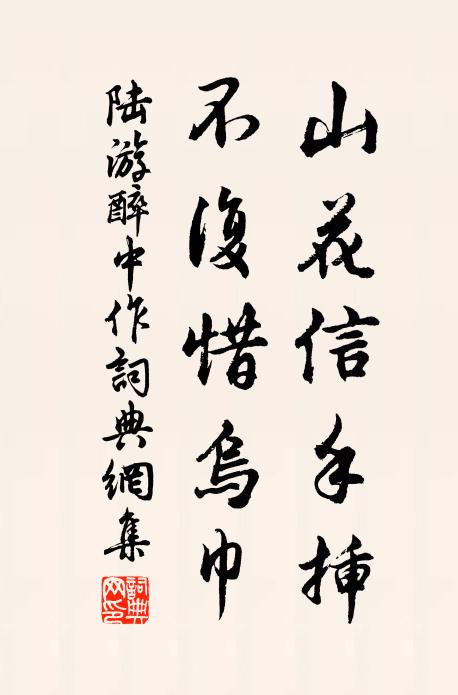 山花信手插
不復惜烏巾
陸游醉中作詞典網集
詞典網印